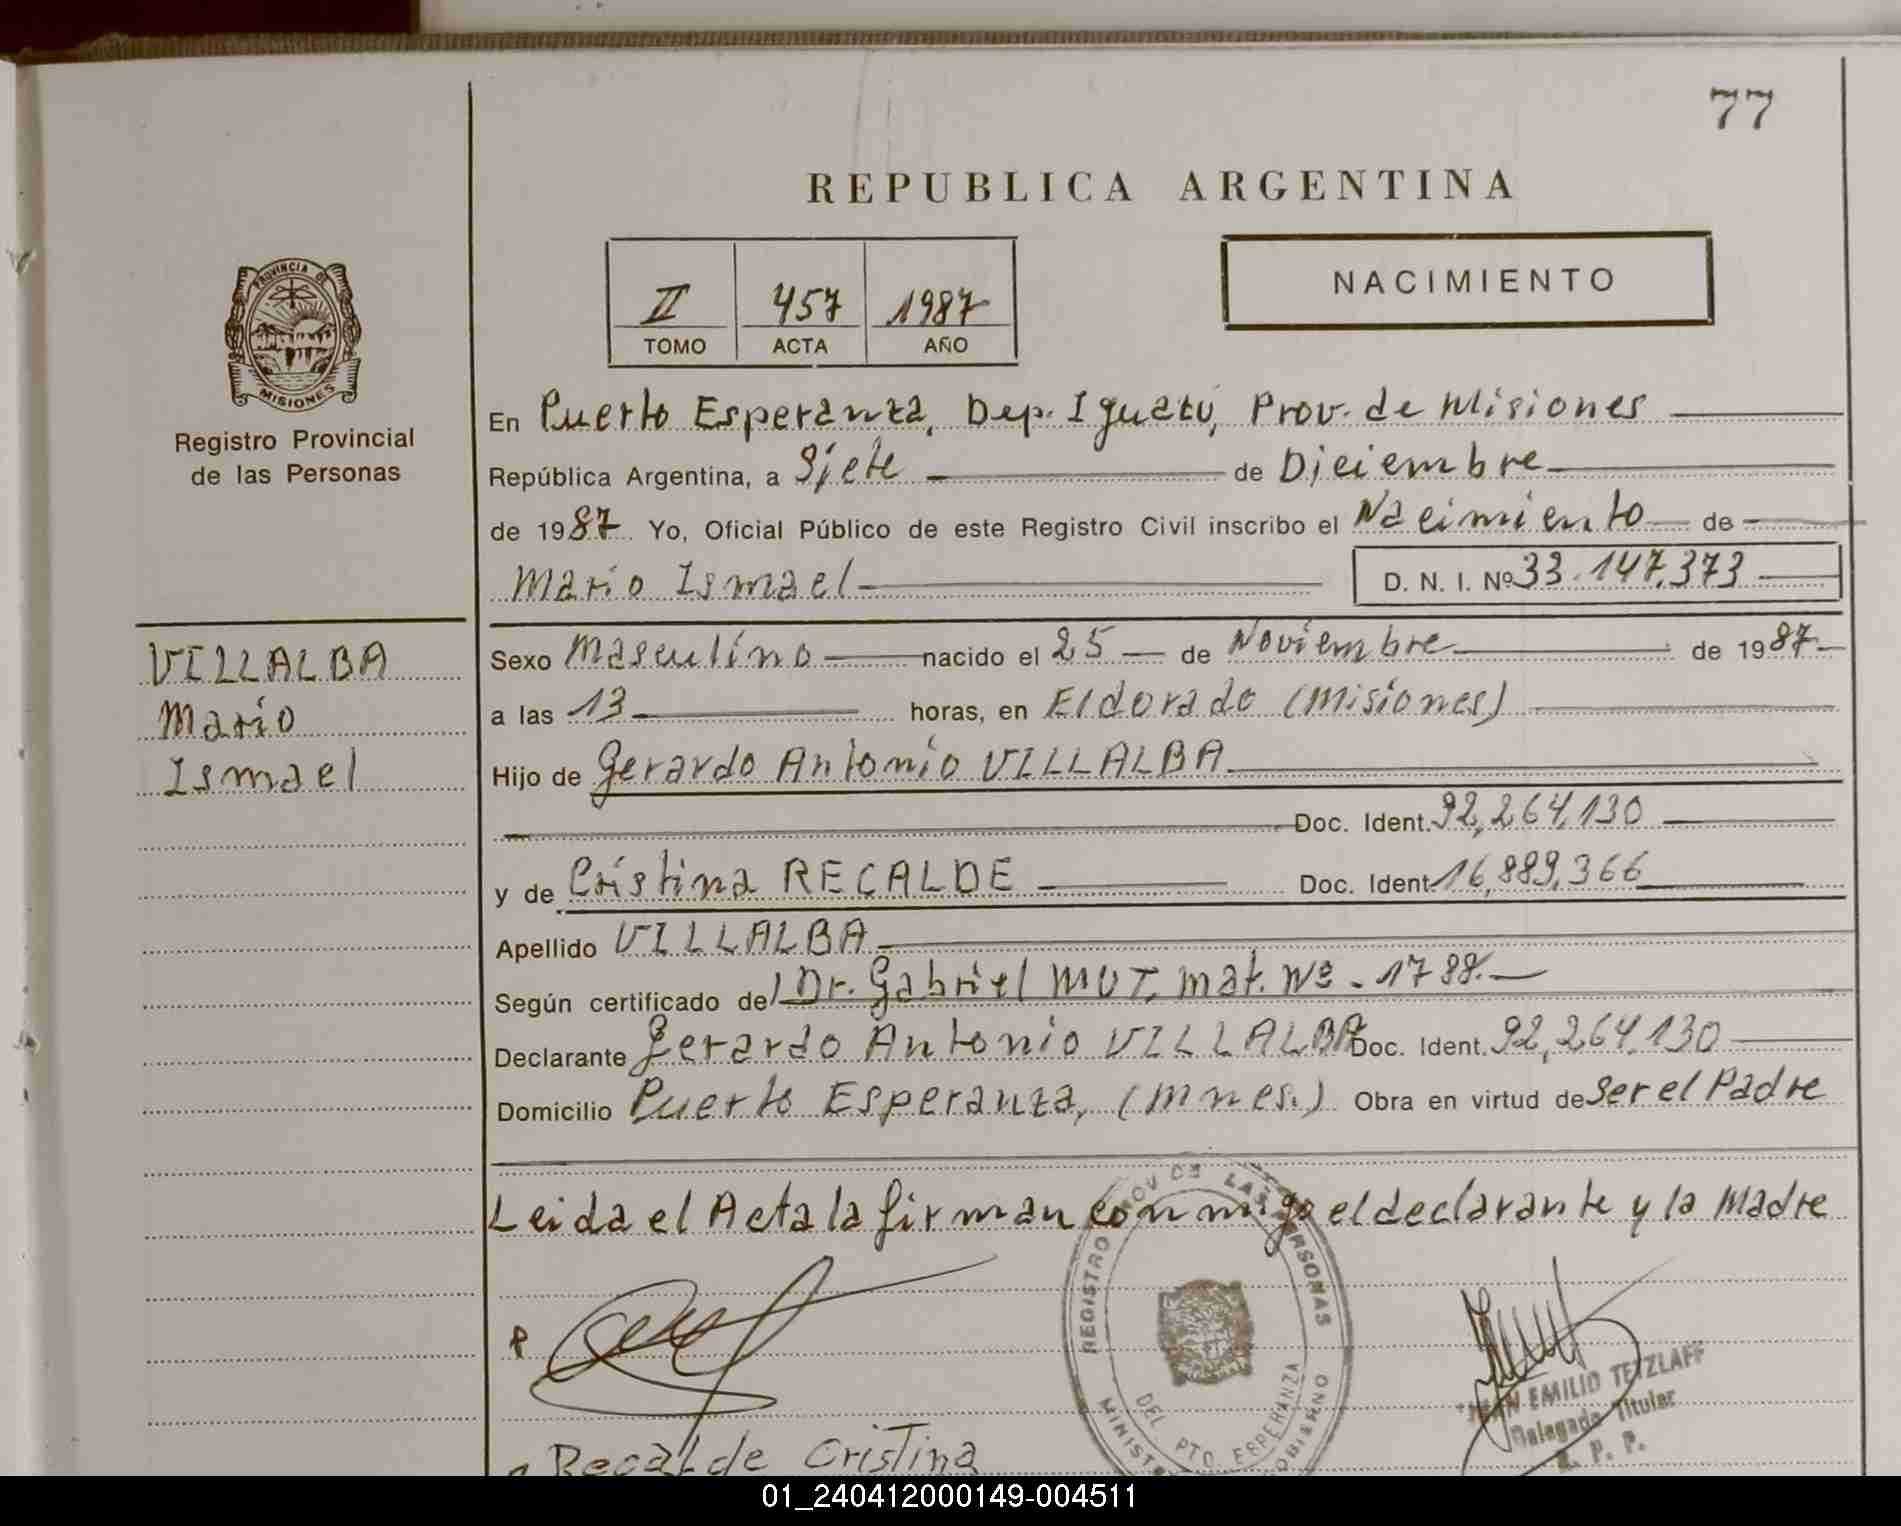 77
REPUBLICA ARGENTINA
II 457 1987
TOMO ACTA AÑO
NACIMIENTO
PROVINCIA DE
MISIONES
Registro Provincial
de las Personas
En Puerto Esperanza, Dep. Iguazú, Prov. de Misiones
República Argentina, a Siete de Diciembre
de 1987 Yo, Oficial Público de este Registro Civil inscribo el Nacimiento de
Mario Ismael D. N. I. Nº 33.147.373
VILLALBA
Mario
Ismael
Sexo Masculino nacido el 25 de Noviembre de 1987
a las 13 horas, en Eldorado (Misiones)
Hijo de Gerardo Antonio VILLALBA
Doc. Ident. 92,264,130
y de Cristina RECALDE Doc. Ident. 16,889,366
Apellido VILLALBA
Según certificado del Dr. Gabriel MUT, Mat. Nº - 1788.-
Declarante Gerardo Antonio VILLALBA Doc. Ident. 92,264,130
Domicilio Puerto Esperanza, (Mnes.) Obra en virtud de Ser el Padre
Leida el Acta la firman conmigo el declarante y la Madre
REGISTRO PROV DE LAS PERSONAS
DEL. PTO ESPERANZA
EMILIO TETZLAFF
Delegado Titular
R. P. P.
Recalde Cristina
01_240412000149-004511